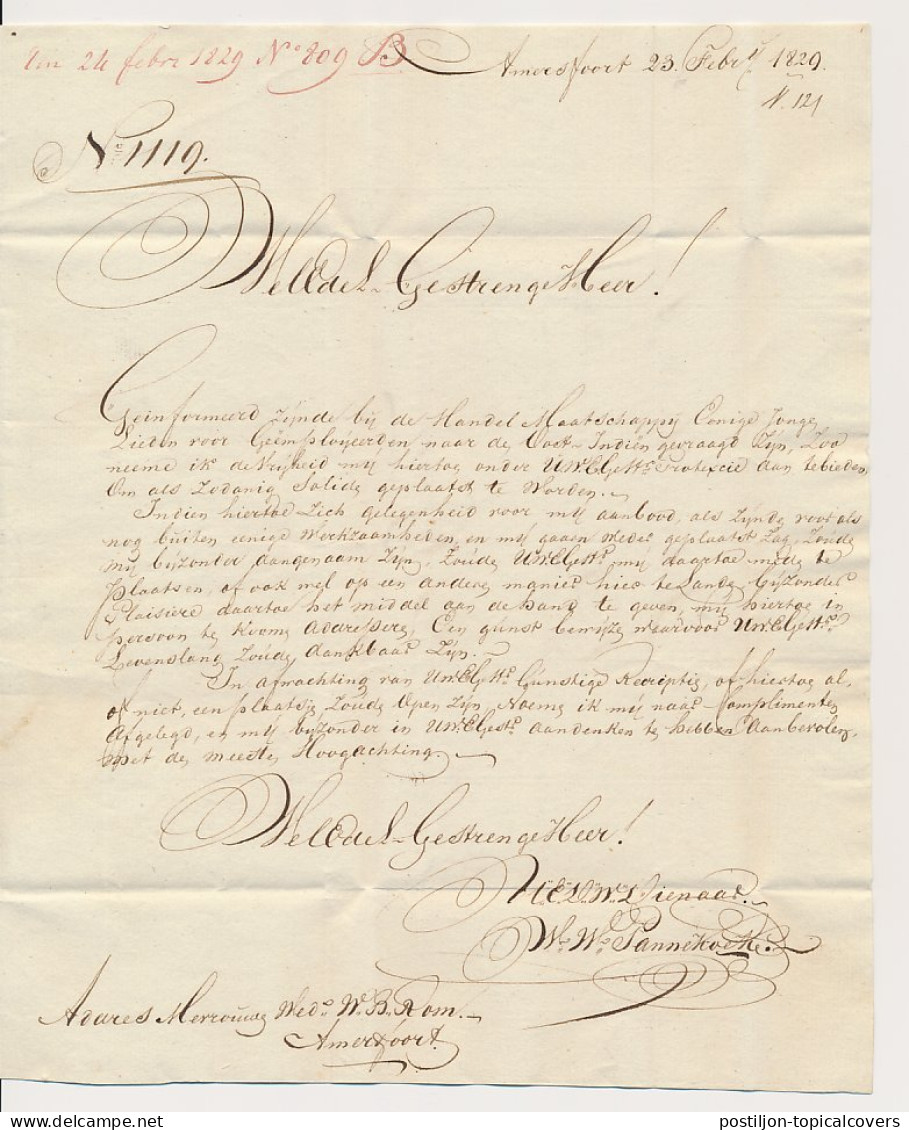 Ain 24 febr 1829 No 809 B
Amersfoort 23. Febry 1829.
N. 121
No 1119.
WelEdel-Gestrenge Heer!
Geinformeerd Zijnde bij de Handel Maatschappij Eenige Jonge
Lieden voor Geëmploijeerden naar de Oost-Indiën gevraagd Zijn, Zoo
neeme ik de Vrijheid mij hiertoe onder UwElGestr. Protexcie aan tebieden,
Om als Zodanig Solide geplaatst te Worden.
Indien hiertoe Zich gelegenheid voor mij aanbood, als Zijnde voor als
nog buiten eenige Werkzaamheden, en mij gaarn weder geplaatst Zag, Zoude
mij bijzonder aangenaam Zijn, Zoude UwElGestr. mij daartoe mede te
Plaatsen, of ook wel op een andere manier hier te Lande, bijzonder
Plaisiere daartoe het middel aan de hand te geven, mij hiertoe in
persoon te koome Adressere, Een gunst bewijze waarvoor UwElGestr.
Levenslang Zoude dankbaar Zijn.
In afwachting van UwElGestr. Gunstige Receiptie, of hiertoe al
of niet, een plaatsje Zoude Open Zijn, Noeme ik mij naar Complimenten
Afgelegd, en mij bijzonder in UwElGestr. aandenken te hebben Aanbevolen,
met de meeste Hoogachting
WelEdel-Gestrenge Heer!
UEd.Wr. Dienaar.
Wm. Wr. Pannekoek.
Adares Mevrouwe Wedr. Wr. B. Rom.
Amersfoort.
postiljon-topicalcovers